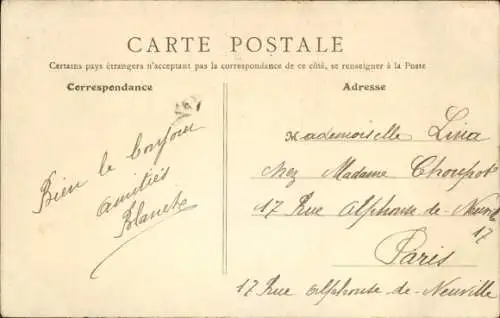 CARTE POSTALE
Certains pays étrangers n'acceptant pas la correspondance de ce côté, se renseigner à la Poste
Correspondance
Bien le bonjour
amitiés
Blanche
Adresse
Mademoiselle Lina
chez Madame Choupot
17 Rue Alphonse-de-Neuville
17
Paris
17 Rue Alphonse-de-Neuville